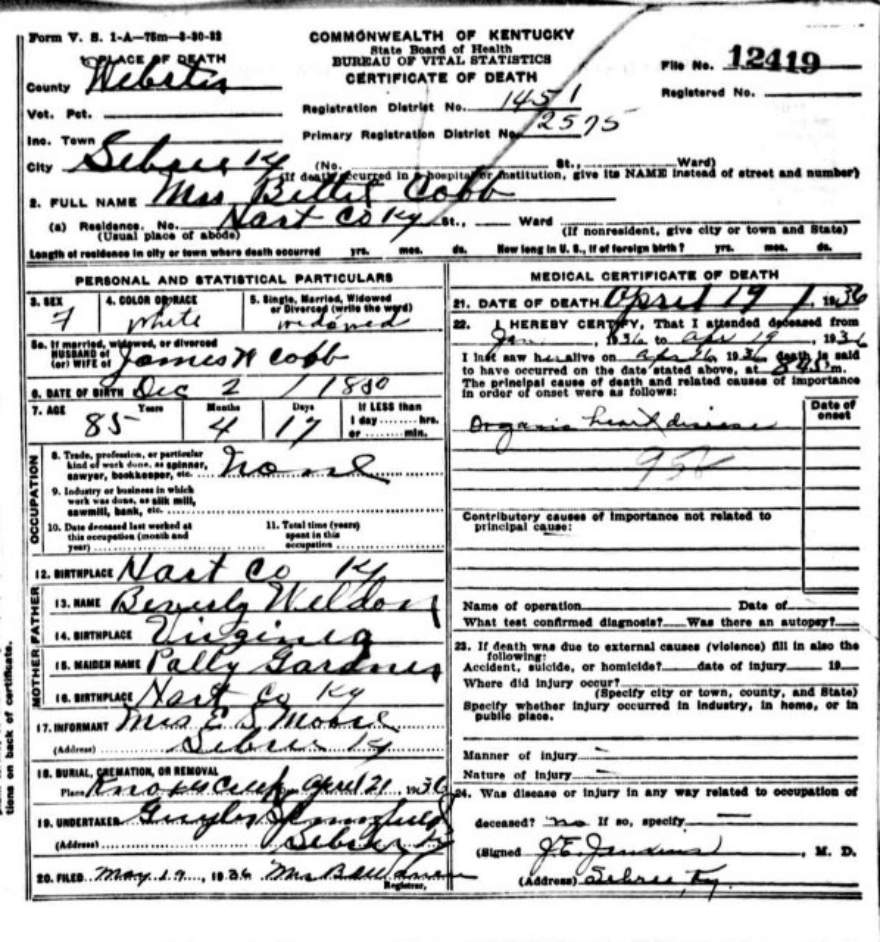 Form V. S. 1-A—75m—8-30-32
COMMONWEALTH OF KENTUCKY
State Board of Health
BUREAU OF VITAL STATISTICS
CERTIFICATE OF DEATH
File No. 12419
Registered No.
1 PLACE OF DEATH
County Webster
Registration District No. 1451
Vot. Pct.
Primary Registration District No. 2575
Inc. Town
City Sebree Ky (No. St., Ward)
(If death occurred in a hospital or institution, give its NAME instead of street and number)
2. FULL NAME Mrs Bettie Cobb
(a) Residence. No. Hart Co Ky St., Ward
(Usual place of abode) (If nonresident, give city or town and State)
Length of residence in city or town where death occurred yrs. mos. ds. How long in U. S., if of foreign birth? yrs. mos. ds.
PERSONAL AND STATISTICAL PARTICULARS
3. SEX 4. COLOR OR RACE 5. Single, Married, Widowed or Divorced (write the word)
F white widowed
5a. If married, widowed, or divorced
HUSBAND of
(or) WIFE of James W Cobb
6. DATE OF BIRTH Dec 2 / 1850
7. AGE Years Months Days If LESS than
85 4 17 1 day ........ hrs.
or ........ min.
OCCUPATION
8. Trade, profession, or particular
kind of work done, as spinner,
sawyer, bookkeeper, etc. None
9. Industry or business in which
work was done, as silk mill,
sawmill, bank, etc.
10. Date deceased last worked at
this occupation (month and
year)
11. Total time (years)
spent in this
occupation
12. BIRTHPLACE Hart Co Ky
FATHER
13. NAME Beverly Weldon
14. BIRTHPLACE Virginia
MOTHER
15. MAIDEN NAME Pally Gardner
16. BIRTHPLACE Hart Co Ky
17. INFORMANT Mrs E S Moore
(Address) Sebree Ky
18. BURIAL, CREMATION, OR REMOVAL
Place Creek April 21, 1936
19. UNDERTAKER
(Address) Sebree Ky
20. FILED May 19, 1936 Mrs
Registrar,
MEDICAL CERTIFICATE OF DEATH
21. DATE OF DEATH April 19 / , 1936
22. I HEREBY CERTIFY, That I attended deceased from
Jan , 1936 to Apr 19 , 1936
I last saw her alive on Apr 16, 1936, death is said
to have occurred on the date stated above, at 845 m.
The principal cause of death and related causes of importance
in order of onset were as follows:
Date of
onset
Organic heart disease
Contributory causes of importance not related to
principal cause:
Name of operation Date of
What test confirmed diagnosis? Was there an autopsy?
23. If death was due to external causes (violence) fill in also the
following:
Accident, suicide, or homicide? date of injury 19
Where did injury occur?
(Specify city or town, county, and State)
Specify whether injury occurred in industry, in home, or in
public place.
Manner of injury
Nature of injury
24. Was disease or injury in any way related to occupation of
deceased? no If so, specify
(Signed J.E. Jenkins , M. D.
(Address) Sebree, Ky.
tions on back of certificate.